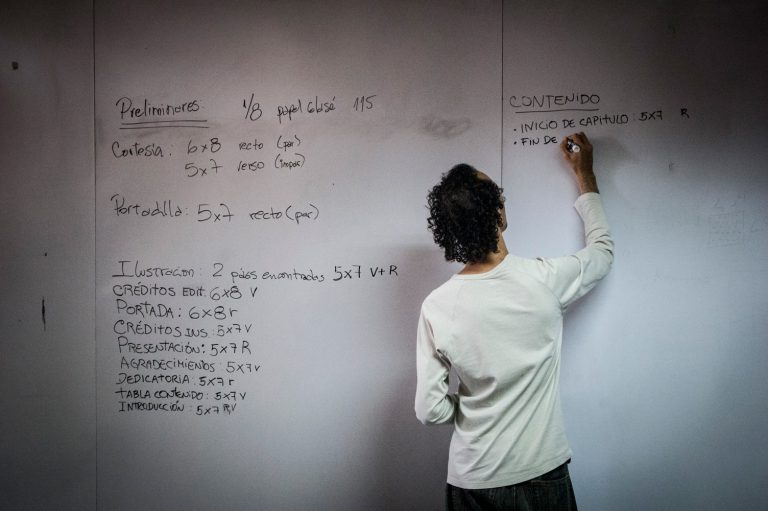 Preliminares: 1/8 papel Glasé 115
Cortesía: 6x8 recto (par)
5x7 verso (impar)
Portadilla: 5x7 recto (par)
Ilustracion: 2 págs encontradas 5x7 V+R
CRÉDITOS EDIT: 6x8 V
PORTADA: 6x8 r
CRÉDITOS INS: 5x7 V
PRESENTACIÓN: 5x7 R
AGRADECIMIENTOS: 5x7 V
DEDICATORIA: 5x7 r
TABLA CONTENIDO: 5x7 V
INTRODUCCIÓN: 5x7 R,V
CONTENIDO
• INICIO DE CAPITULO: 5x7 R
• FIN DE